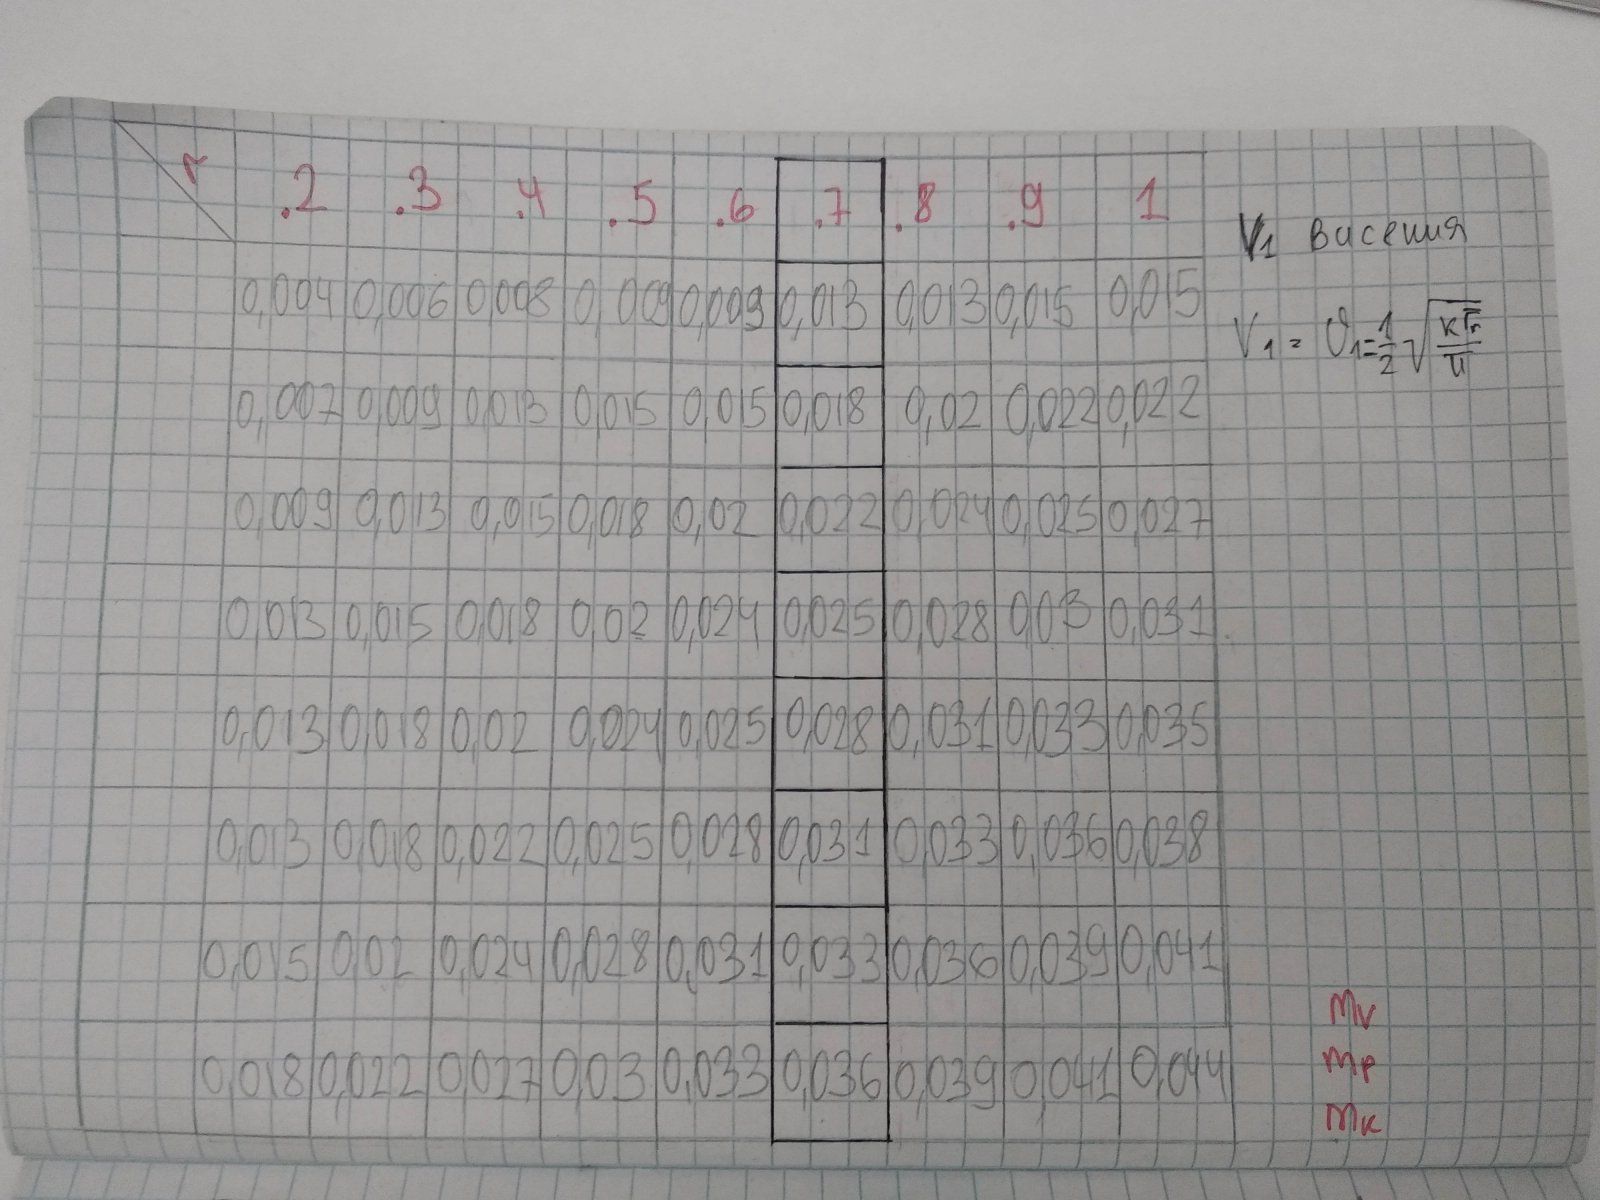 r .2 .3 .4 .5 .6 .7 .8 .9 1
0,004 0,006 0,008 0,009 0,009 0,013 0,013 0,015 0,015
0,007 0,009 0,013 0,015 0,015 0,018 0,02 0,022 0,022
0,009 0,013 0,015 0,018 0,02 0,022 0,024 0,025 0,027
0,013 0,015 0,018 0,02 0,024 0,025 0,028 0,03 0,031
0,013 0,018 0,02 0,024 0,025 0,028 0,031 0,033 0,035
0,013 0,018 0,022 0,025 0,028 0,031 0,033 0,036 0,038
0,015 0,02 0,024 0,028 0,031 0,033 0,036 0,039 0,041
0,018 0,022 0,027 0,03 0,033 0,036 0,039 0,041 0,044
V₁ висения
V₁ = ϑ₁ =
mv
mp
mk